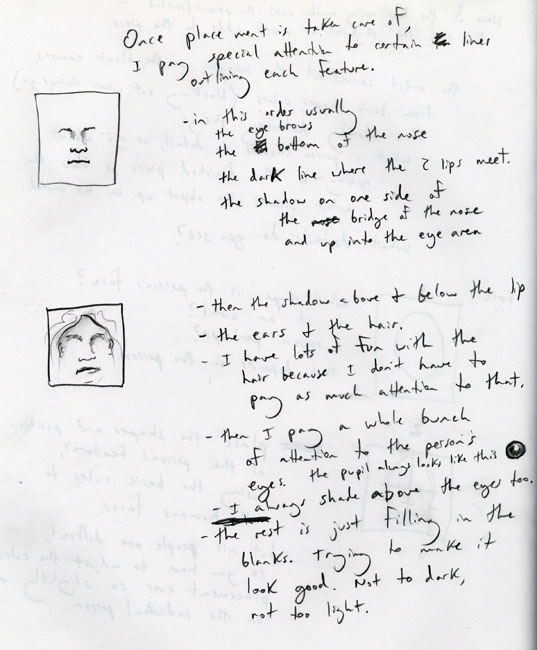 Once placement is taken care of,
I pay special attention to certain lines
outlining each feature.
- in this order usually
the eye brows
the bottom of the nose
the dark line where the 2 lips meet.
the shadow on one side of
the bridge of the nose
and up into the eye area
- then the shadow above & below the lip
- the ears & the hair.
- I have lots of fun with the
hair because I don't have to
pay as much attention to that.
- then I pay a whole bunch
of attention to the person's
eyes. the pupil always looks like this
- I always shade above the eyes too.
- the rest is just filling in the
blanks. trying to make it
look good. Not to dark,
not too light.